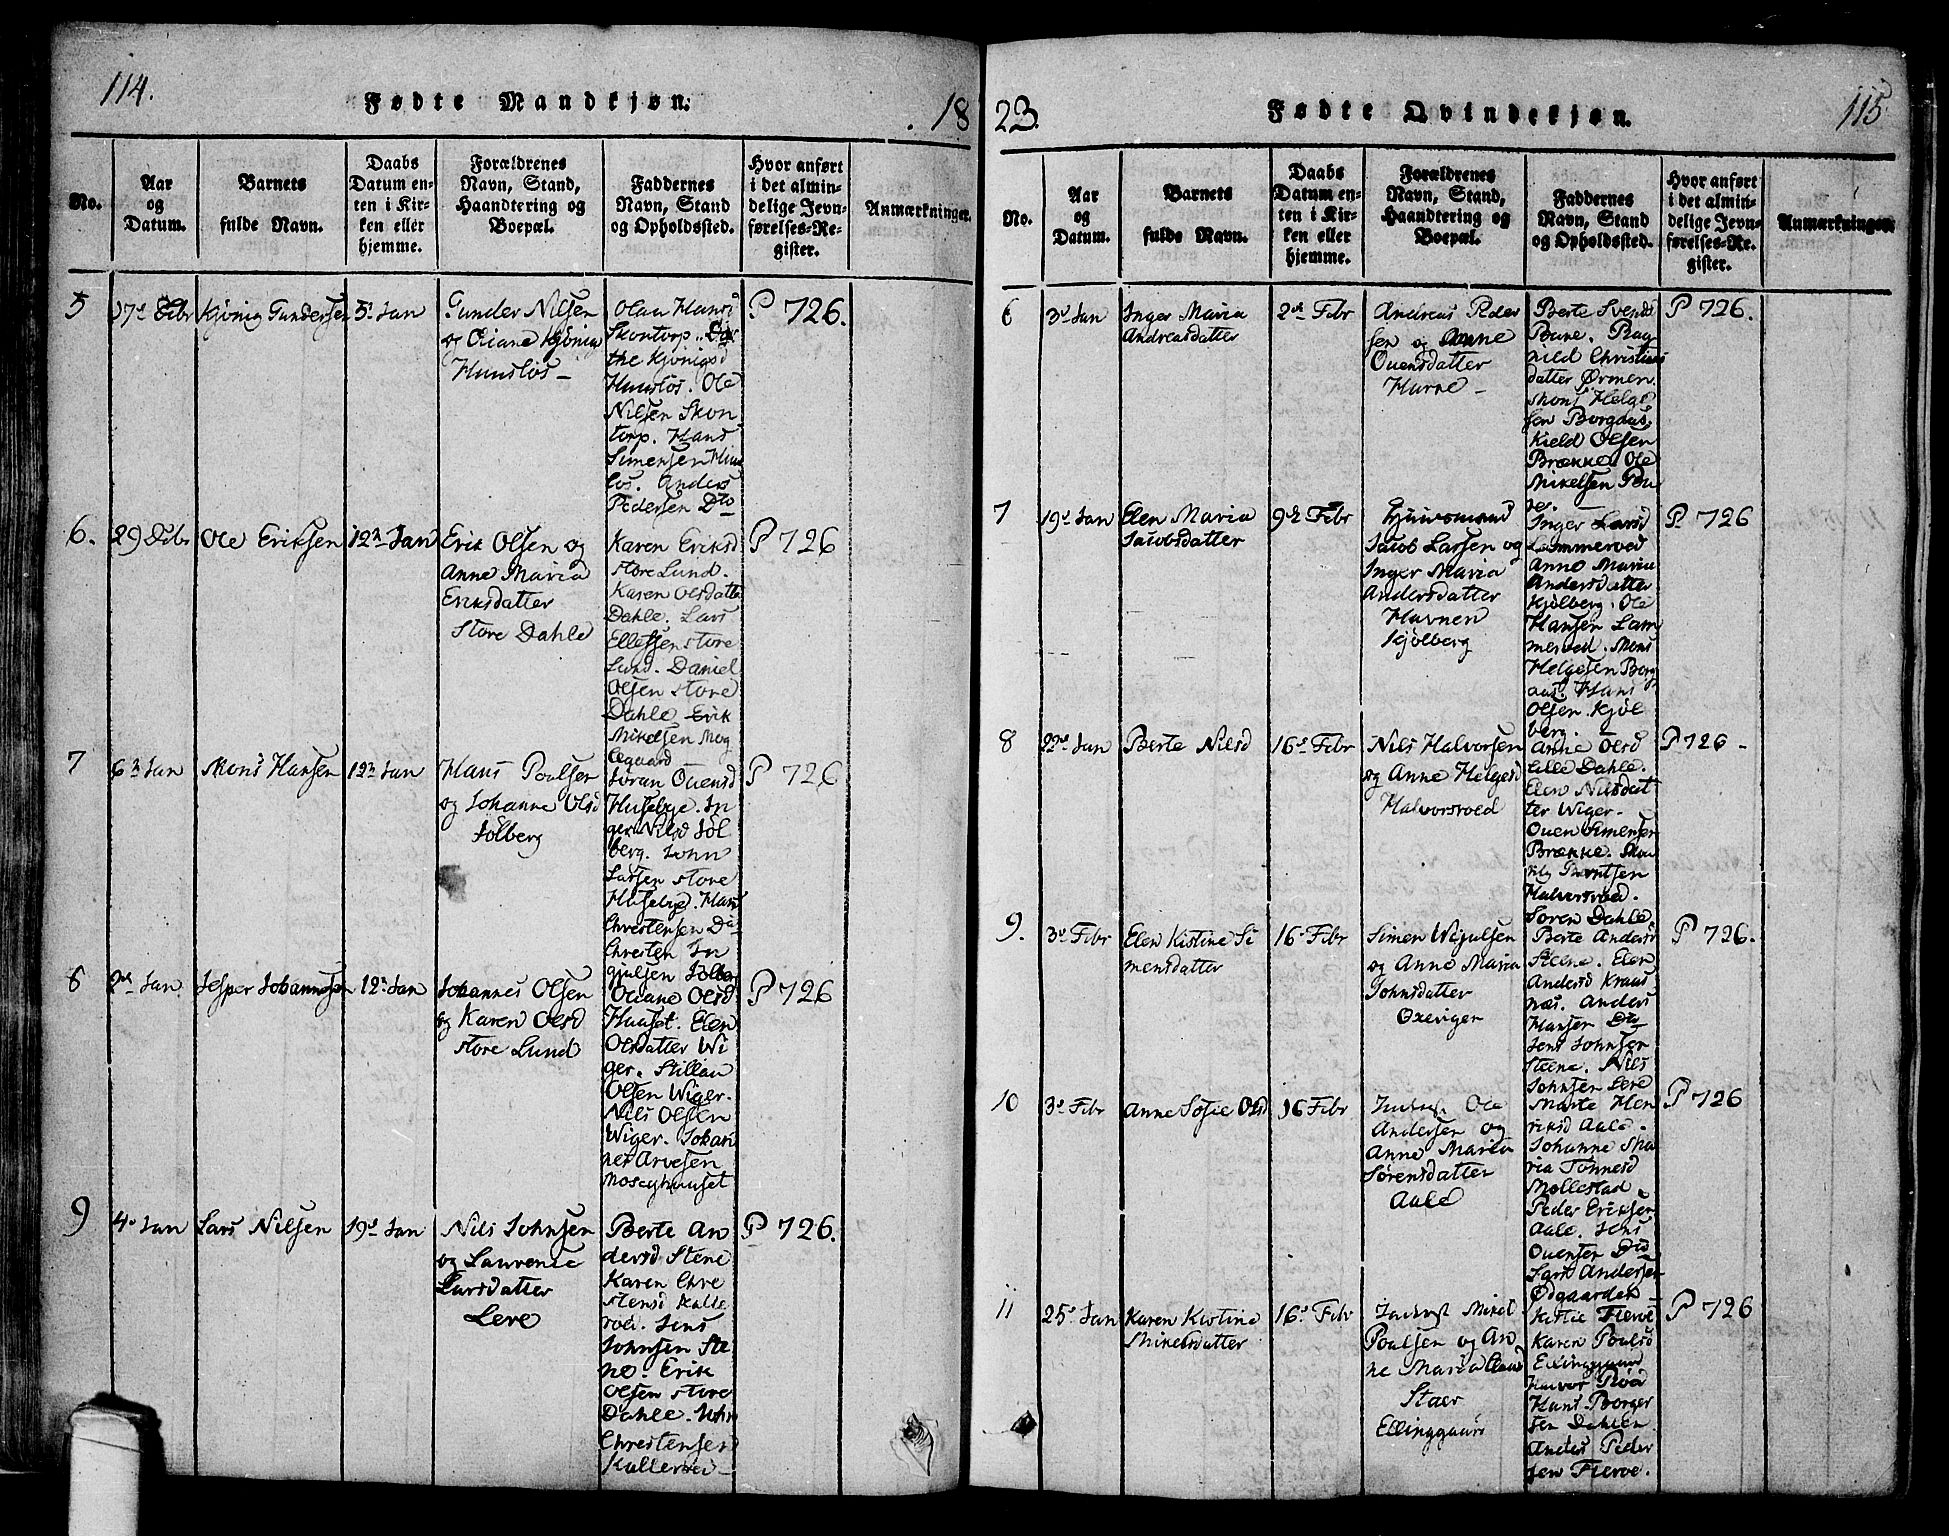 114.
Fødte Mandkjøn.
18
No.
Aar
og
Datum.
Barnets
fulde Navn.
Daabs
Datum en-
ten i Kir-
ken eller
hjemme.
Forældrenes
Navn, Stand,
Haandtering og
Boepæl.
Faddernes
Navn, Stand
og Opholdssted.
Hvor anført
i det almin-
delige Jevn-
førelses-Re-
gister.
Anmærkninger.
5
Kjönig Gundersen
5 Jan
Gunder Nilsen
og Oliane Kjönig
Hunslös
Olaa Hansd
Skontorp.
the Kjönigsd
Hunslös. Ole
Nilsen Skon
torp. Hans
Simensen Huns
lös. Anders
Pedersen Do
P 726.
6.
29 Debr
Ole Eriksen
12 Jan
Erik Olsen og
Anne Maria
Eriksdatter
Store Dahle
Karen Eriksd
store Lund.
Karen Olsdatter
Dahle. Lars
Ellefsen store
Lund. Daniel
Olsen store
Dahle. Erik
Mikelsen Mog
legaard
P 726
7
6 Jan
Mons Hansen
12 Jan
Hans Poulsen
og Johanne Olsd
Solberg
Joran Ouensd
Husebye. In
ger Nilsd Sol
berg. John
Larsen store
Husebye. Hans
Christensen Do
Christen In
gjulsen Solberg
P 726
8
2 Jan
Jesper Johannesen
12 Jan
Johannes Olsen
og Karen Olsd
store Lund
Oliane Olsd
Huuset. Elen
Olsdatter Wi
ger. Stillau
Olsen Wiger.
Nils Olsen
Wiger. Johan
nes Arvesen
Moseyhuuset
P 726
9
4 Jan
Lars Nilsen
19 Jan
Nils Johnsen
og Laurense
Larsdatter
Lere
Berte An
dersd Stene
Karen Chre
stensd Kalle
rød. Jens
Johnsen Ste
ne. Erik
Olsen store
Dahle. John
Christensen
Kallerød
P 726.
23.
Fødte Qvindekjøn.
115
No.
Aar
og
Datum.
Barnets
fulde Navn.
Daabs
Datum en-
ten i Kir-
ken eller
hjemme.
Forældrenes
Navn, Stand,
Haandtering og
Boepæl.
Faddernes
Navn, Stand
og Opholdssted.
Hvor anført
i det almin-
delige Jevn-
førelses-Re-
gister.
Anmærkninger.
6
3 Jan
Inger Maria
Andreasdatter
2 Febr
Andreas Peder
sen og Anne
Ouensdatter
Hurne
Berte Svends
Bune. Rag
nild Christians
datter Ørmen.
Mons Helge
sen Borgaas.
Kield Olsen
Brække. Ole
Mikelsen Bu
ne.
P 726.
7
19 Jan
Elen Maria
Jacobsdatter
9 Febr
Jacob Larsen og
Inger Maria
Andersdatter
Havnen
Kjölberg
Inger Larsd
Lammerved
Anne Maria
Andersdatter
Kjölberg. Ole
Hansen Lam
merved. Mons
Helgesen Borg
aas. Hans
Olsen Kjöl
berg.
P 726
8
22 Jan
Berte Nilsd
16 Febr
Nils Halvorsen
og Anne Helgesd
Halvorsroed
Anne Olsd
lille Dahle.
Elen Nilsdat
ter Wiger.
Ouen Simensen
Brække.
Halvorsroed.
Soren Dahle.
P 726
9.
3 Febr
Elen Kistine Si
mensdatter
16 Febr
Simen Wijulsen
og Anne Maria
Johnsdatter
Oxeviger
Berte Andersd
Steene. Elen
Andersd Kraus
næs. Anders
Hansen Do
Jens Johnsen
Steene. Nils
Johnsen Lere
P 726.
10
3 Febr
Anne Sofie Olsd
16 Febr
Ole
Andersen og
Anne Maria
Sörensdatter
Aale
Marte Hen
riksd Aale.
Johanne Ma
ria Tonnesd
Mollestad
Peder Eriksen
Aale. Jens
Ouensen Do
Lars Andersen
Ødgaarden
P 726
11
25 Jan
Karen Kistine
Mikelsdatter
16 Febr
Mikel
Poulsen og An
ne Maria
Staer
Ellinggaard
Kistie Fleröe
Karen Poulsd
Ellinggaard
Halvor Röd
Hans Borger
sen Dahlen
Anders Peder
sen Fleröe.
P 726